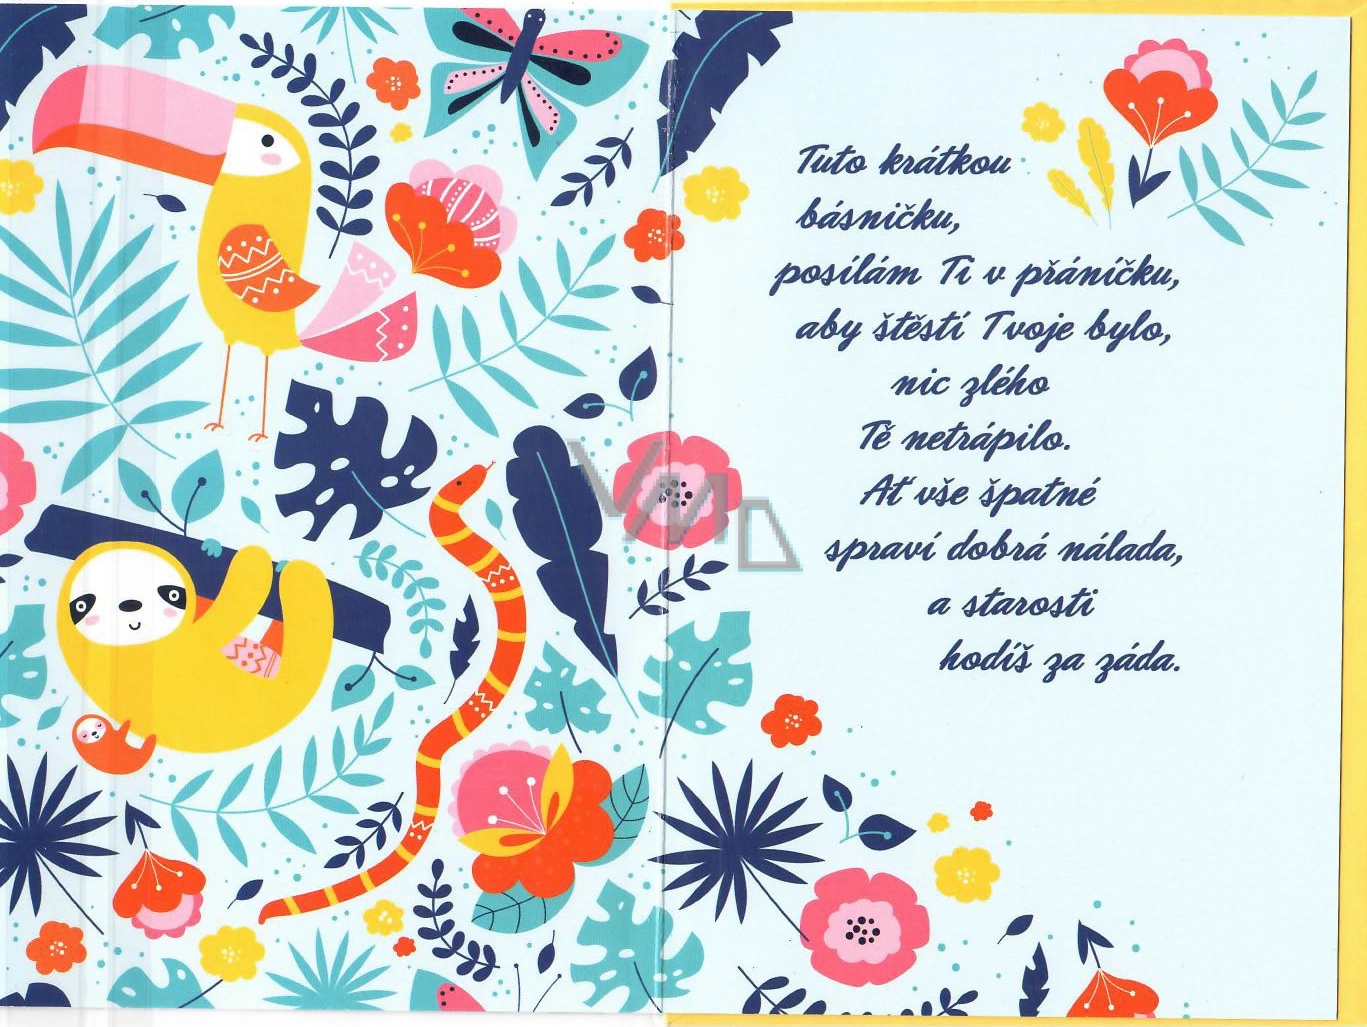 Tuto krátkou
básničku,
posílám Ti v přáníčku,
aby štěstí Tvoje bylo,
nic zlého
Tě netrápilo.
Ať vše špatné
spraví dobrá nálada,
a starosti
hodíš za záda.
VMD